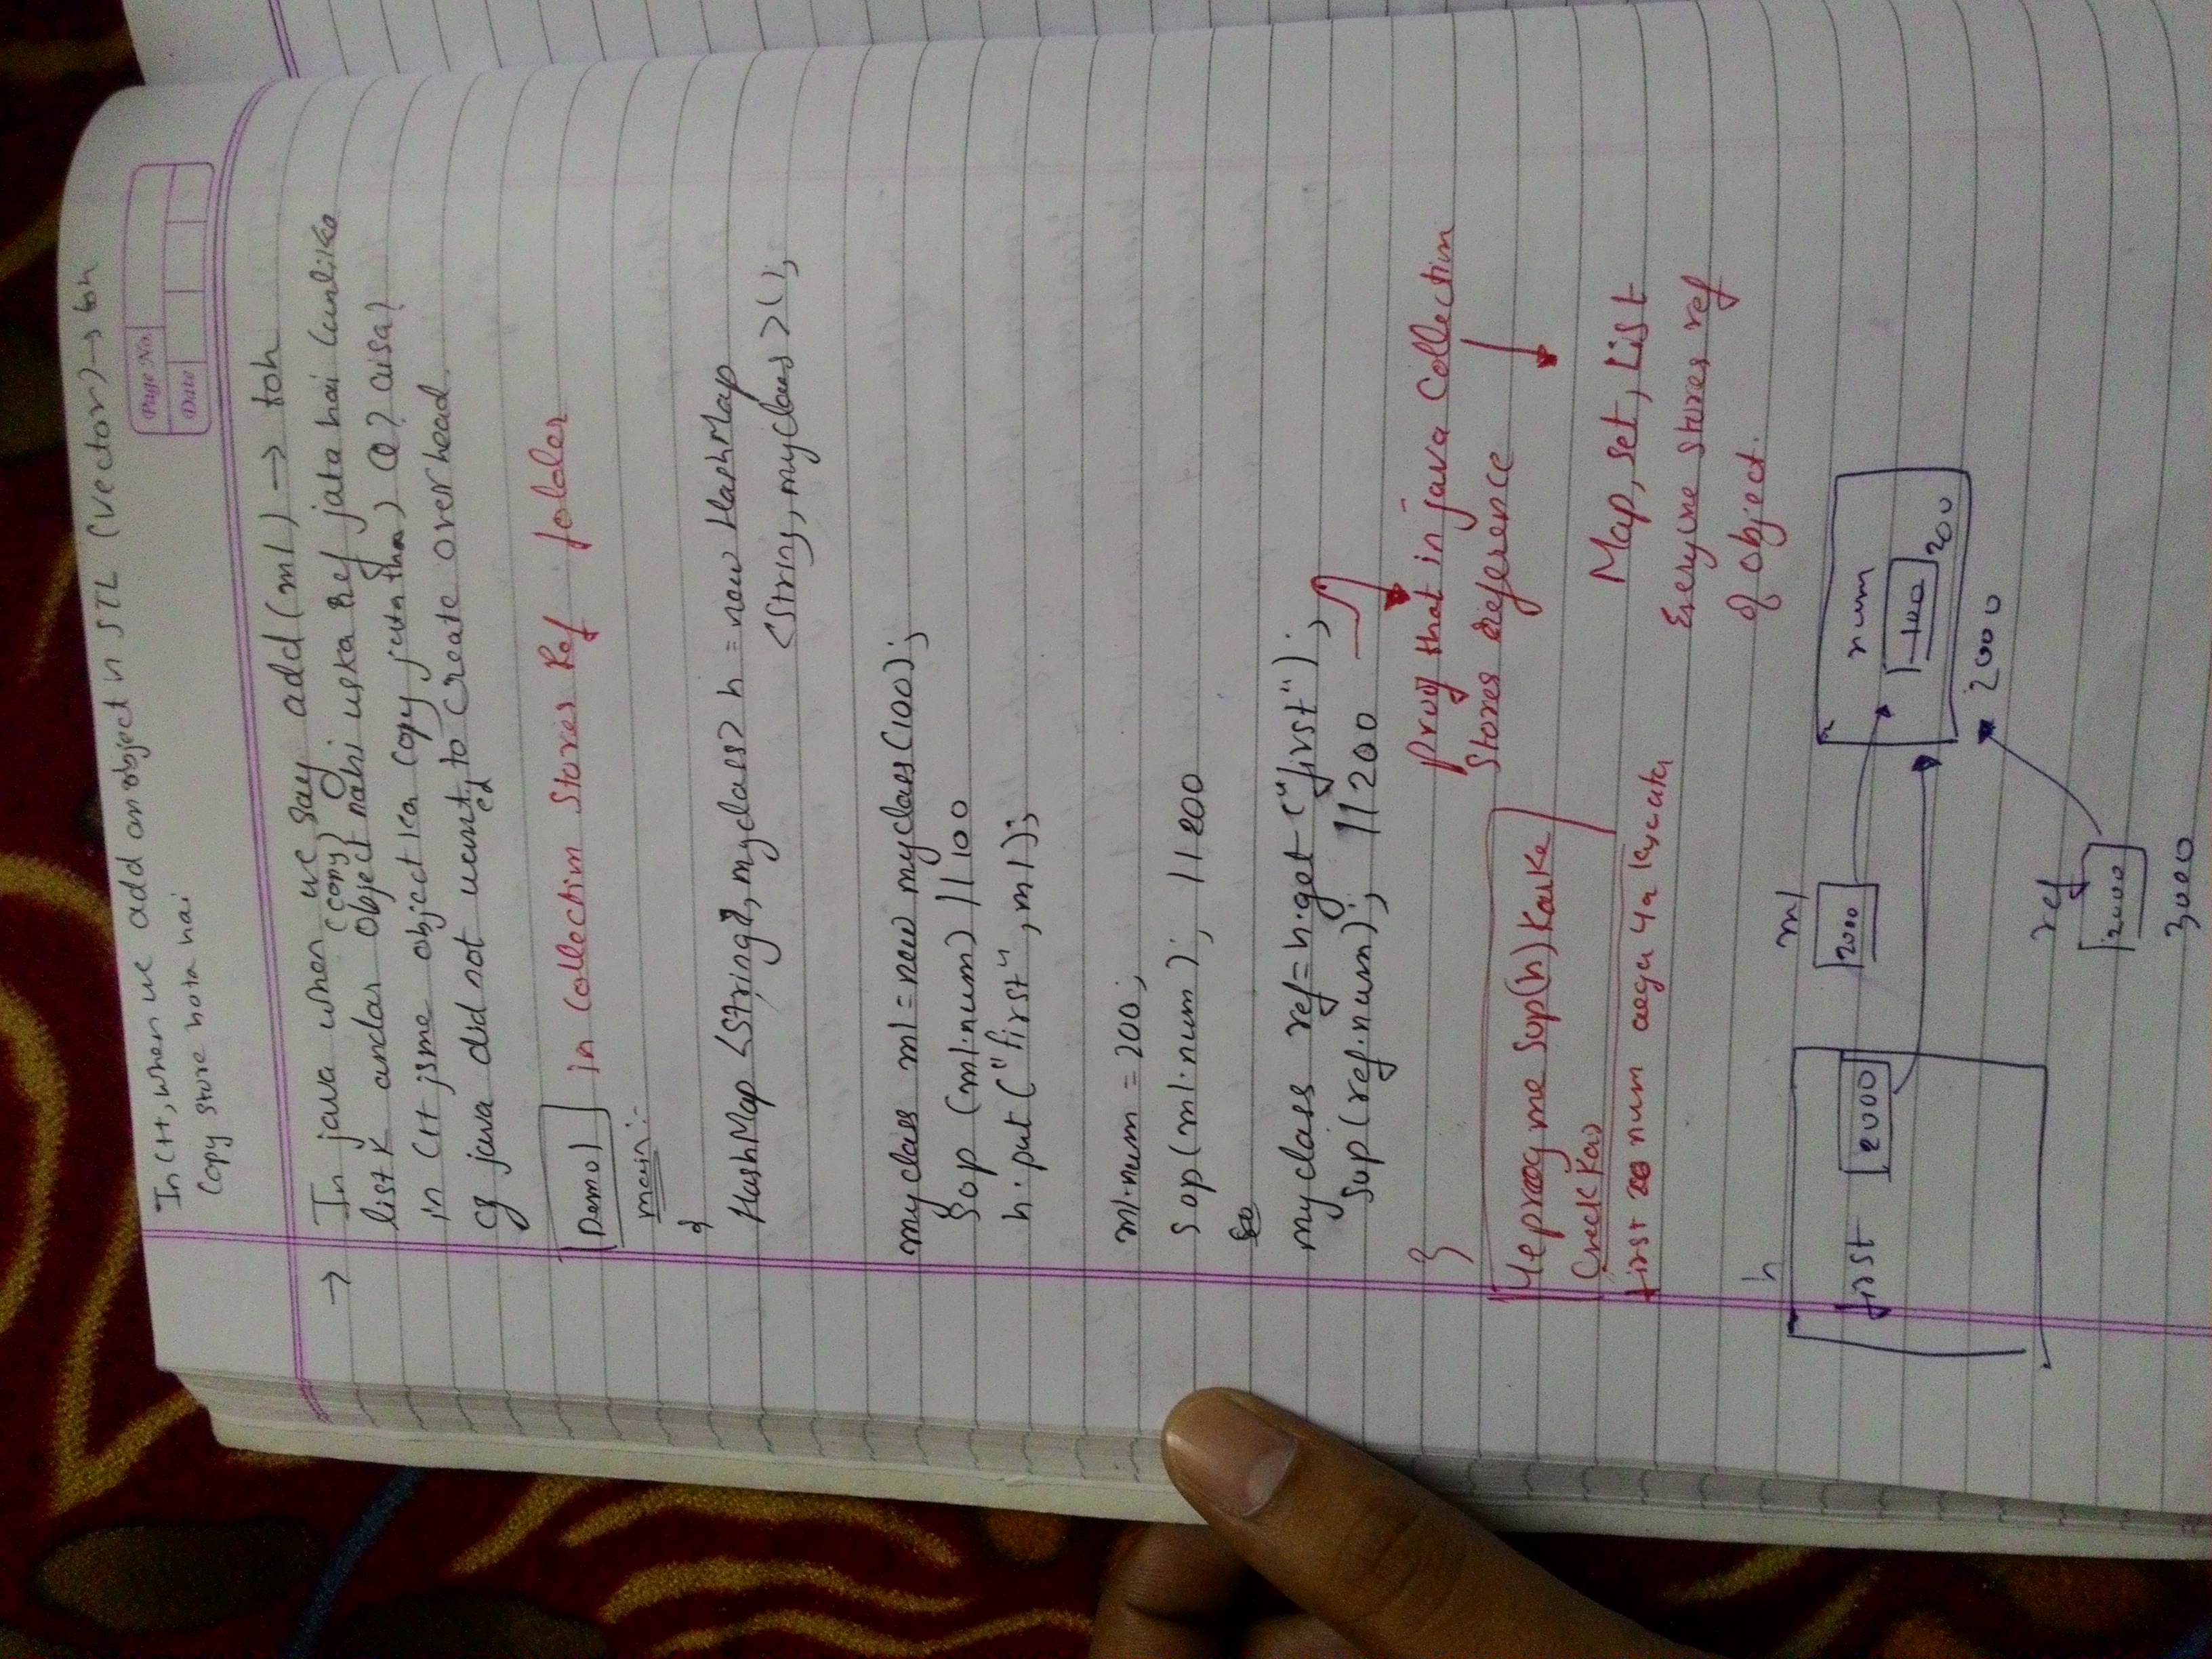 In C++, when we add an object in STL (vector) → toh
Copy store hota hai
Page No.
Date
→ In java when we say add(m1) → toh
(copy)
list k andar object nahi uska ref jata hai (unlike
in C++ jsme object ka copy jata tha) Q? aisa?
cz java did not wanted to create overhead.
Demo1 in Collection Stores Ref folder
main:-
{
HashMap <String, myclass> h = new HashMap
<String, myclass>();
myclass m1 = new myclass(100);
Sop (m1.num) //100
h.put("first", m1);
m1.num = 200;
Sop(m1.num); //200
so
myclass ref=h.get("first");
Sop(ref.num); //200
}
prog that in java Collection
Stores reference
Ye prog me Sop(h) Karke
Check Kar
first num aega ya kya ata
Map, set, List
Everyone stores ref
of object.
h
first 2000
m1
2000
num
100
200
2000
ref
2000
3000